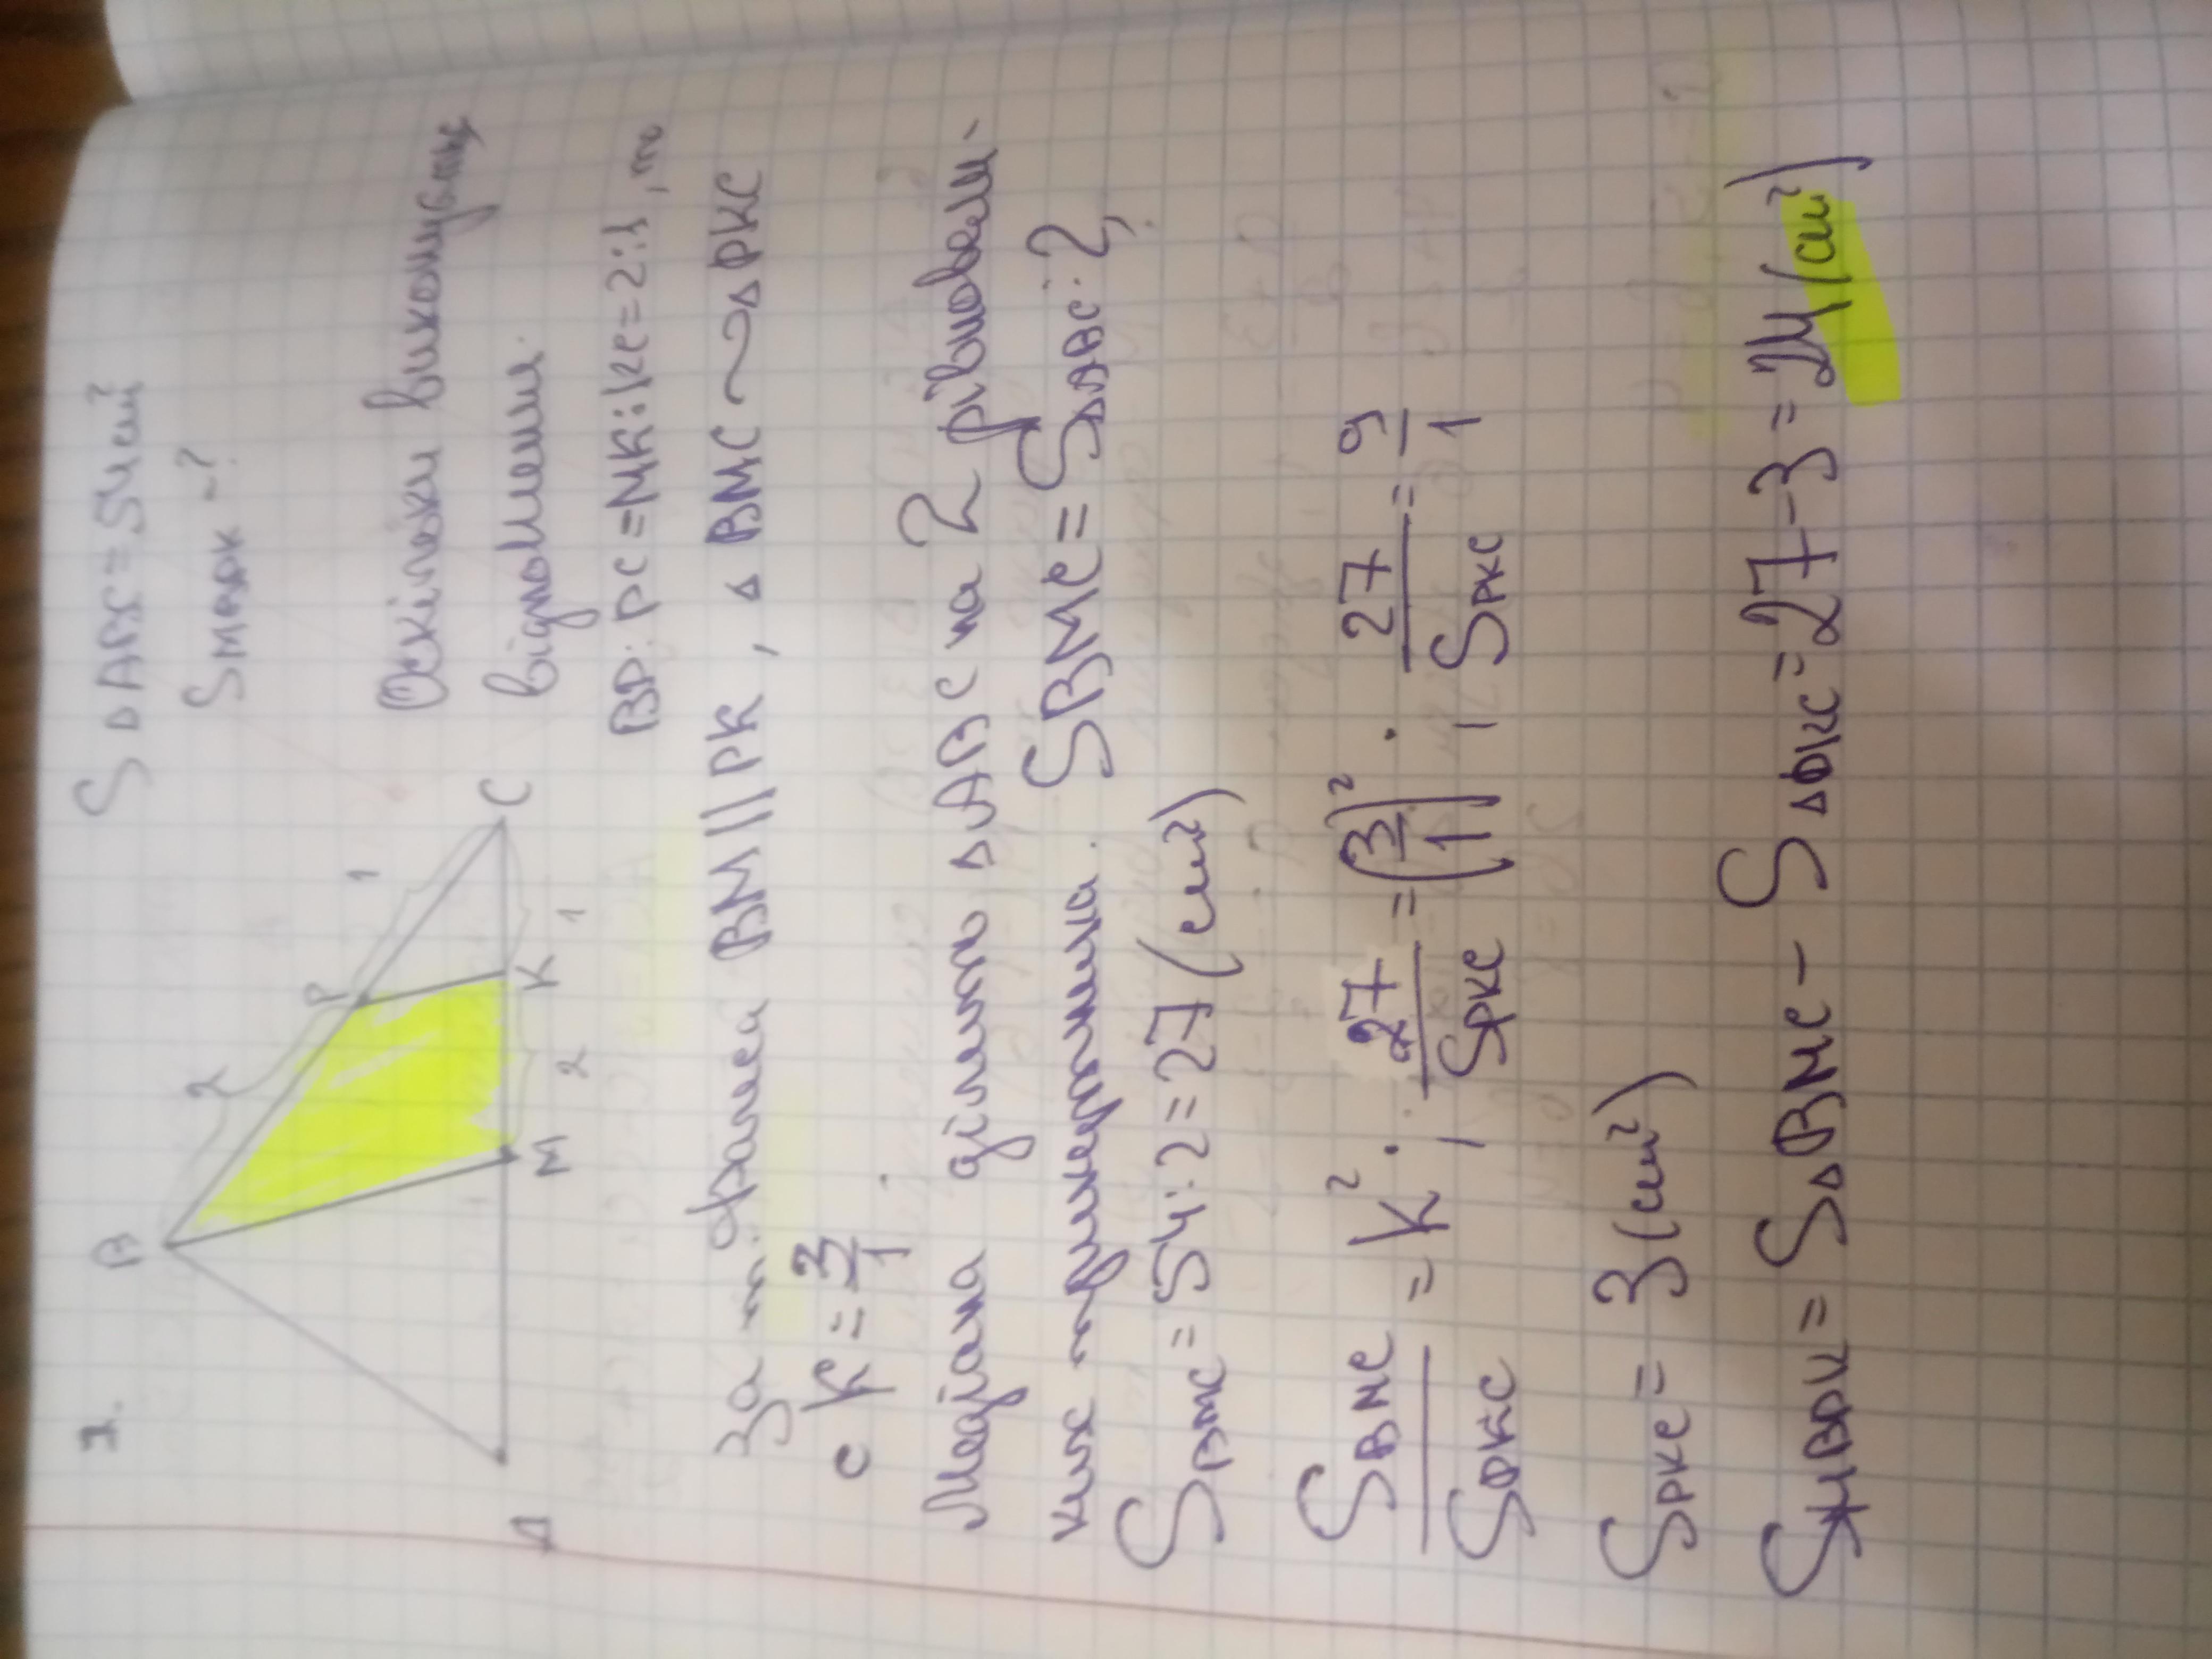 1.
B
2
P
1
C
A
M
2
K
1
S △ABC = 54 см²
SМВРК - ?
Оскільки виконується
відношення
BP:PC = MK:KC = 2:1, то
За т. Фалеса BM || PK, △ BMC ~ △ PKC
с K = 3/1.
Медіана ділить △ABC на 2 рівновели-
ких трикутника. SBMC = S△ABC : 2;
SBMC = 54 : 2 = 27 (см²)
SBMC/SPKC = K²; 27/SPKC = (3/1)²; 27/SPKC = 9/1
SPKC = 3 (см²)
SMBPK = S△BMC - S△PKC = 27 - 3 = 24 (см²)